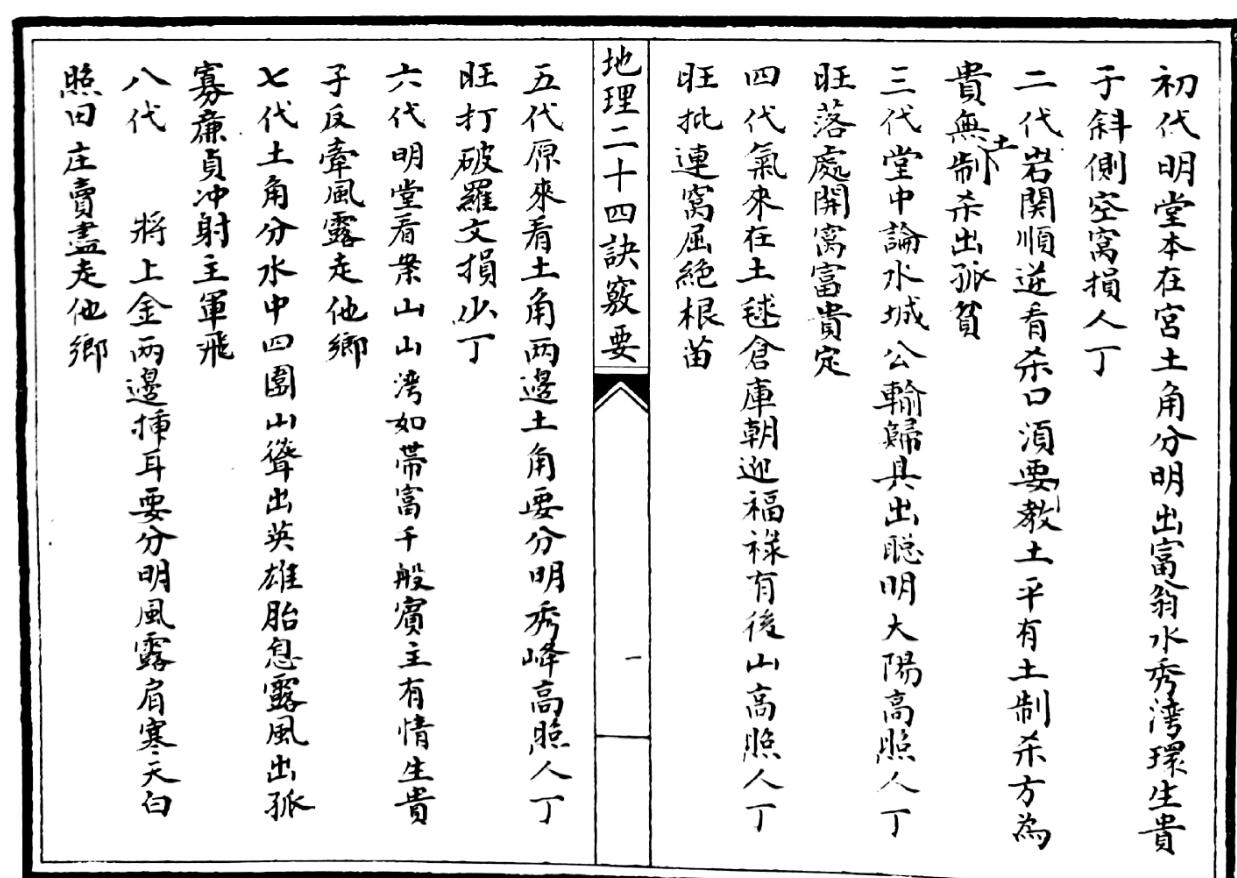 初代明堂本在宮土角分明出富翁水秀湾環生貴
于斜側空窩損人丁
二代岩関順逆看杀口須要教土平有土制杀方為
貴無土制杀出孤貧
三代堂中論水城公輸歸具出聡明大陽高照人丁
旺落處開窩富貴定
四代氣來在土毬倉庫朝迎福祿有後山高照人丁
旺批連窩屈絶根苗
地理二十四訣竅要
一
五代原來看土角两邉土角要分明秀峰高照人丁
旺打破羅文損少丁
六代明堂看案山山湾如帶富千般賓主有情生貴
子反牽風露走他鄉
七代土角分水中四圍山聳出英雄胎息露風出孤
寡廉貞冲射主軍飛
八代 將上金两邉揷耳要分明風露肩寒天白
照田庄賣盡走他鄉